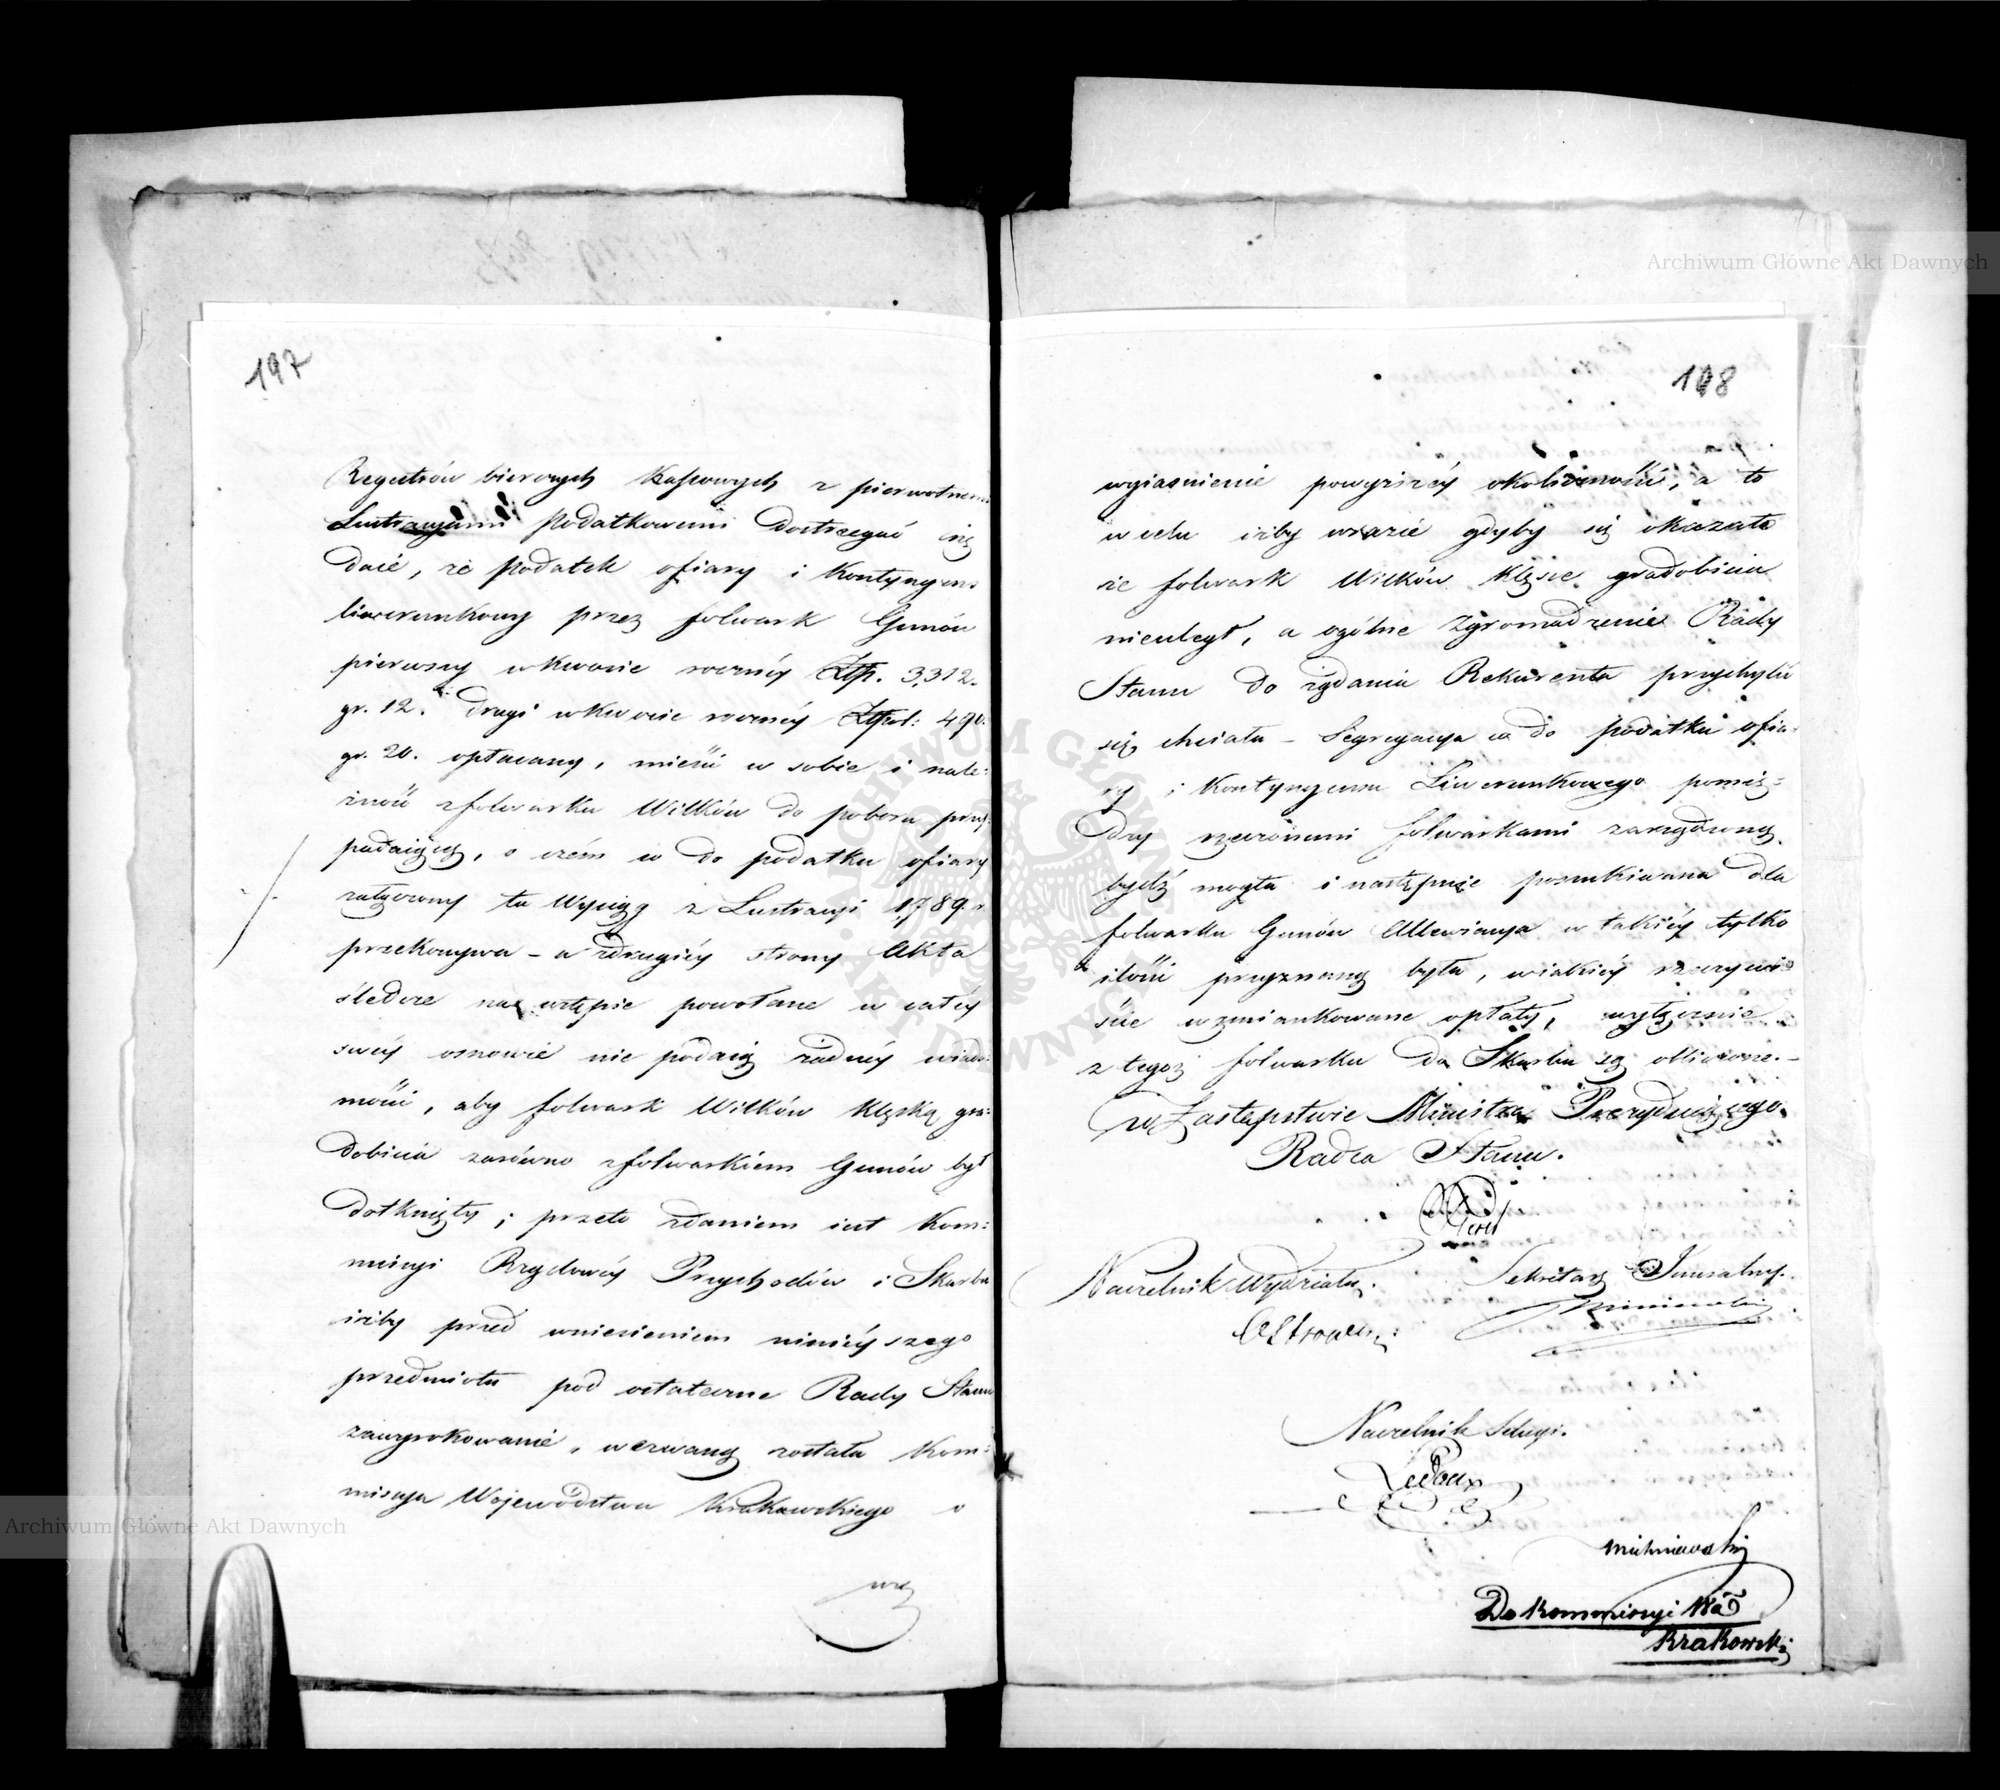 197
Regestrów bierczych Kassowych z pierwotnemi
Lustracyami Podatkowemi dostrzegać się
daie, że Podatek ofiary i Kontyngens
liwerunkowy przez folwark Gunów
pierwszy w kwocie roczney Złtp. 3,312.
gr. 12. drugi w kwocie roczney Złtpol: 490.
gr. 20. opłacany, mieści w sobie i nale-
żność z folwarku Wilków do poboru przy-
padaiącą, o czém co do podatku ofiary
załączony tu Wyciąg z Lustracyi 1789 r.
przekonywa – a z drugiéy strony Akta
śledcze na wstępie powołane w całéy
swéy osnowie nie podaią żadnéy wiado-
mości, aby folwark Wilków klęską gra-
dobicia zarówno z folwarkiem Gunów był
dotknięty; przeto zdaniem iest Kom-
missyi Rządowéy Przychodów i Skarbu
iżby przed wniesieniem ninieyszego
przedmiotu pod ostateczne Rady Stanu
zawyrokowanie, wezwaną została Kom-
missya Województwa Krakowskiego o
wy
198
wyiaśnienie powyższéy okoliczności, a to
w celu iżby w razie gdyby się okazało
że folwark Wilków klęsce gradobicia
nieuległ, a ogólne Zgromadzenie Rady
Stanu do żądania Rekurenta przychylić
się chciało – Segregacya co do podatku ofia-
ry i Kontyngensu Liwerunkowego pomię-
dzy rzeczonemi folwarkami zarządzoną
bydź mogła i następnie poszukiwana dla
folwarku Gunów Allewiacya w takiéy tylko
ilości przyznaną była, w iakiéy rzeczywi-
ście wzmiankowane opłaty, wyłącznie
z tegoż folwarku do Skarbu są obliczone. –
w Zastępstwie Ministra Prezyduiącego
Radca Stanu.
Naczelnik Wydziału.
Sekretarz Jeneralny.
Naczelnik Sekcyi.
Do Kommissyi Wdz
Krakowski
Archiwum Główne Akt Dawnych
Archiwum Główne Akt Dawnych
ARCHIWUM GŁÓWNE AKT DAWNYCH